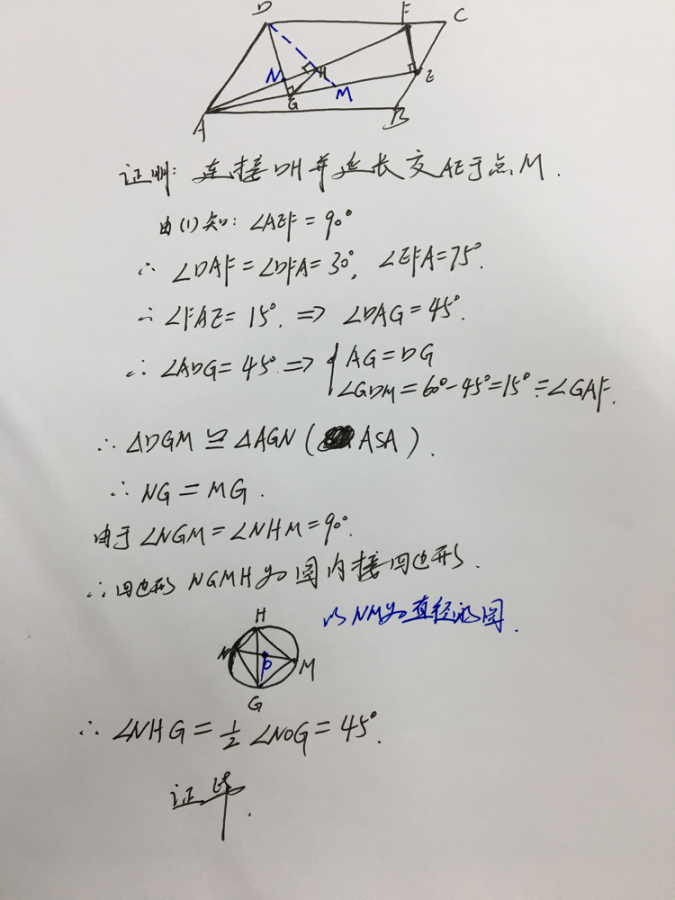 D F C
N H
G M E
A B
证明：连接DH并延长交AE于点M.
由(1)知：∠AEF=90°
∴ ∠DAF=∠DFA=30°, ∠EFA=75°.
∴ ∠FAE=15°. ⇒ ∠DAG=45°.
∴ ∠ADG=45° ⇒ { AG=DG
∠GDM=60°-45°=15°=∠GAF.
∴ △DGM≌△AGN (ASA).
∴ NG=MG.
由于∠NGM=∠NHM=90°.
∴四边形 NGMH为圆内接四边形.
以NM为直径的圆.
H
N M
G
∴ ∠NHG=½∠NOG=45°.
证毕.